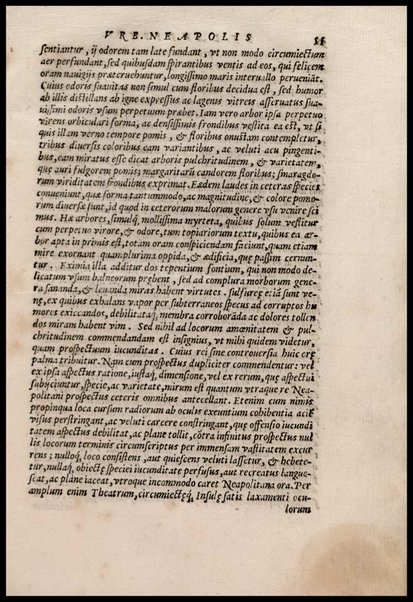 VRB. NEAPOLIS 55
sentiantur, ij odorem tam late fundant, vt non modo circumiectum
aer perfundant, sed quibusdam spirantibus ventis ad eos, qui felicem
oram nauigijs prætervehuntur, longissimo maris interuallo perueniāt.
Cuius odoris suauitas non simul cum floribus decidua est, sed humor
ab illis distillans ab igne expressus ac lagenis vitreis asseruatus sua-
uissimi odoris vsum perpetuum præbet. Iam vero arbor ipsa perpetuo
virens orbiculari forma, ac densissimis frondibus vestita ea est, vt si
quis illam verno tempore pomis, & floribus onustam contempletur,
tribus diuersis coloribus eam variantibus, ac veluti acu pingenti-
bus, eam miratus esse dicat arboris pulchritudinem, & varietatem,
quæ auri fulgorem pomis; margaritarū candorem floribus; smaragdo-
rum viriditatem frondibus exprimat. Eædem laudes in ceteras species
conueniunt, quæ forma tantummodo, ac magnitudine, & colore pomo-
rum diuersæ sunt, id quod in ceterorum malorum genere vsu venire sci
mus. Hæ arbores, simulq́, mollissima myrteta, quibus solum vestitur
cum perpetuo virore, & odore, tum topiariorum textu, quibus ea ar-
bor apta in primis est, totam oram conspiciendam faciunt, quam etiam
mire exornant quamplurima suburbana, & ædificia, quæ passim cernun
tur. Eximia illa additur dos tepentium fontium, qui non modo de-
licatum vsum balneorum præbent, sed ad complura morborum gene-
ra sananda, & leuanda miras habent virtutes. sulfureæ etiā sunt ve-
næ, ex quibus exhalans vapor per subterraneos specus ad corruptos hu
mores exiccandos, debilitataq́, membra corroborāda ac dolores tollen
dos miram habent vim. Sed nihil ad locorum amœnitatem & pul-
chritudinem commendandam est insignius, vt mihi quidem videtur,
quam prospectuum iucunditas. Cuius rei sine controuersia huic oræ
palma tribuitur. Nam cum prospectus dupliciter commendetur: vel
ex ipsa aspectus ratione, iustaq́, dimensione, vel ex rerum, quæ aspectui
subijciuntur, specie, ac varietate, mirum est quantum vtraque re Nea-
politani prospectus ceteris omnibus antecellant. Etenim cum nimis
propinqua loca cursum radiorum ab oculis exeuntium cohibentia aciē
visus perstringant, ac veluti carcere constringant, quæ offensio iucundi
tatem aspectus debilitat, ac plane tollit, cōtra infinitus prospectus nul
lis locorum terminis circumscriptus per immensam vastitatem excur
rens; nulloq́, loco consistens, aut quiescens veluti lassetur, & hebete-
tur, nullaq́, obiectæ speciei iucunditate persusus, aut recreatus langue-
scat, ac plane iaceat, vtroque incommodo caret Neapolitana ora. Per
amplum enim Theatrum, circumiectæq́, Insulæ satis laxamenti ocu-
lorum